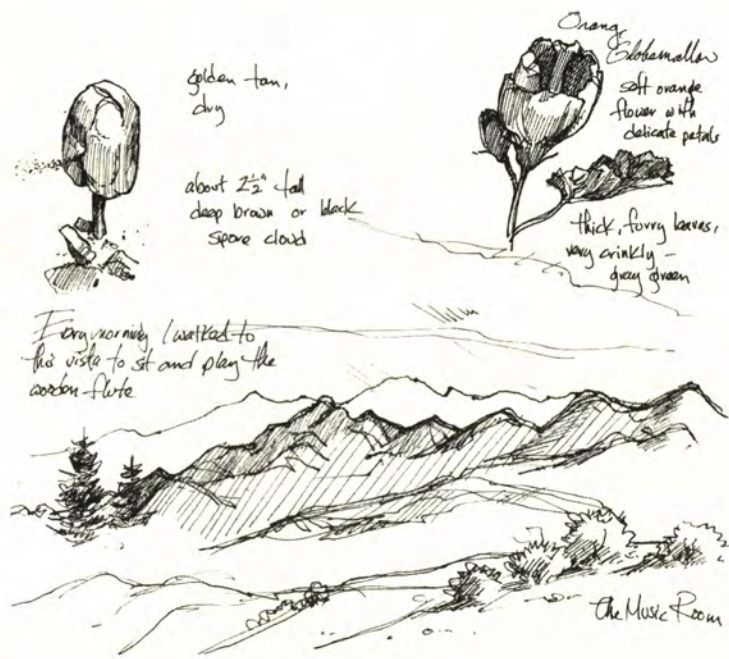 golden tan,
dry
about 2½" tall
deep brown or black
spore cloud
Orange
Globemallow
soft orange
flower with
delicate petals
thick, furry leaves,
very crinkly –
gray green
Every morning I walked to
this vista to sit and play the
wooden flute
The Music Room